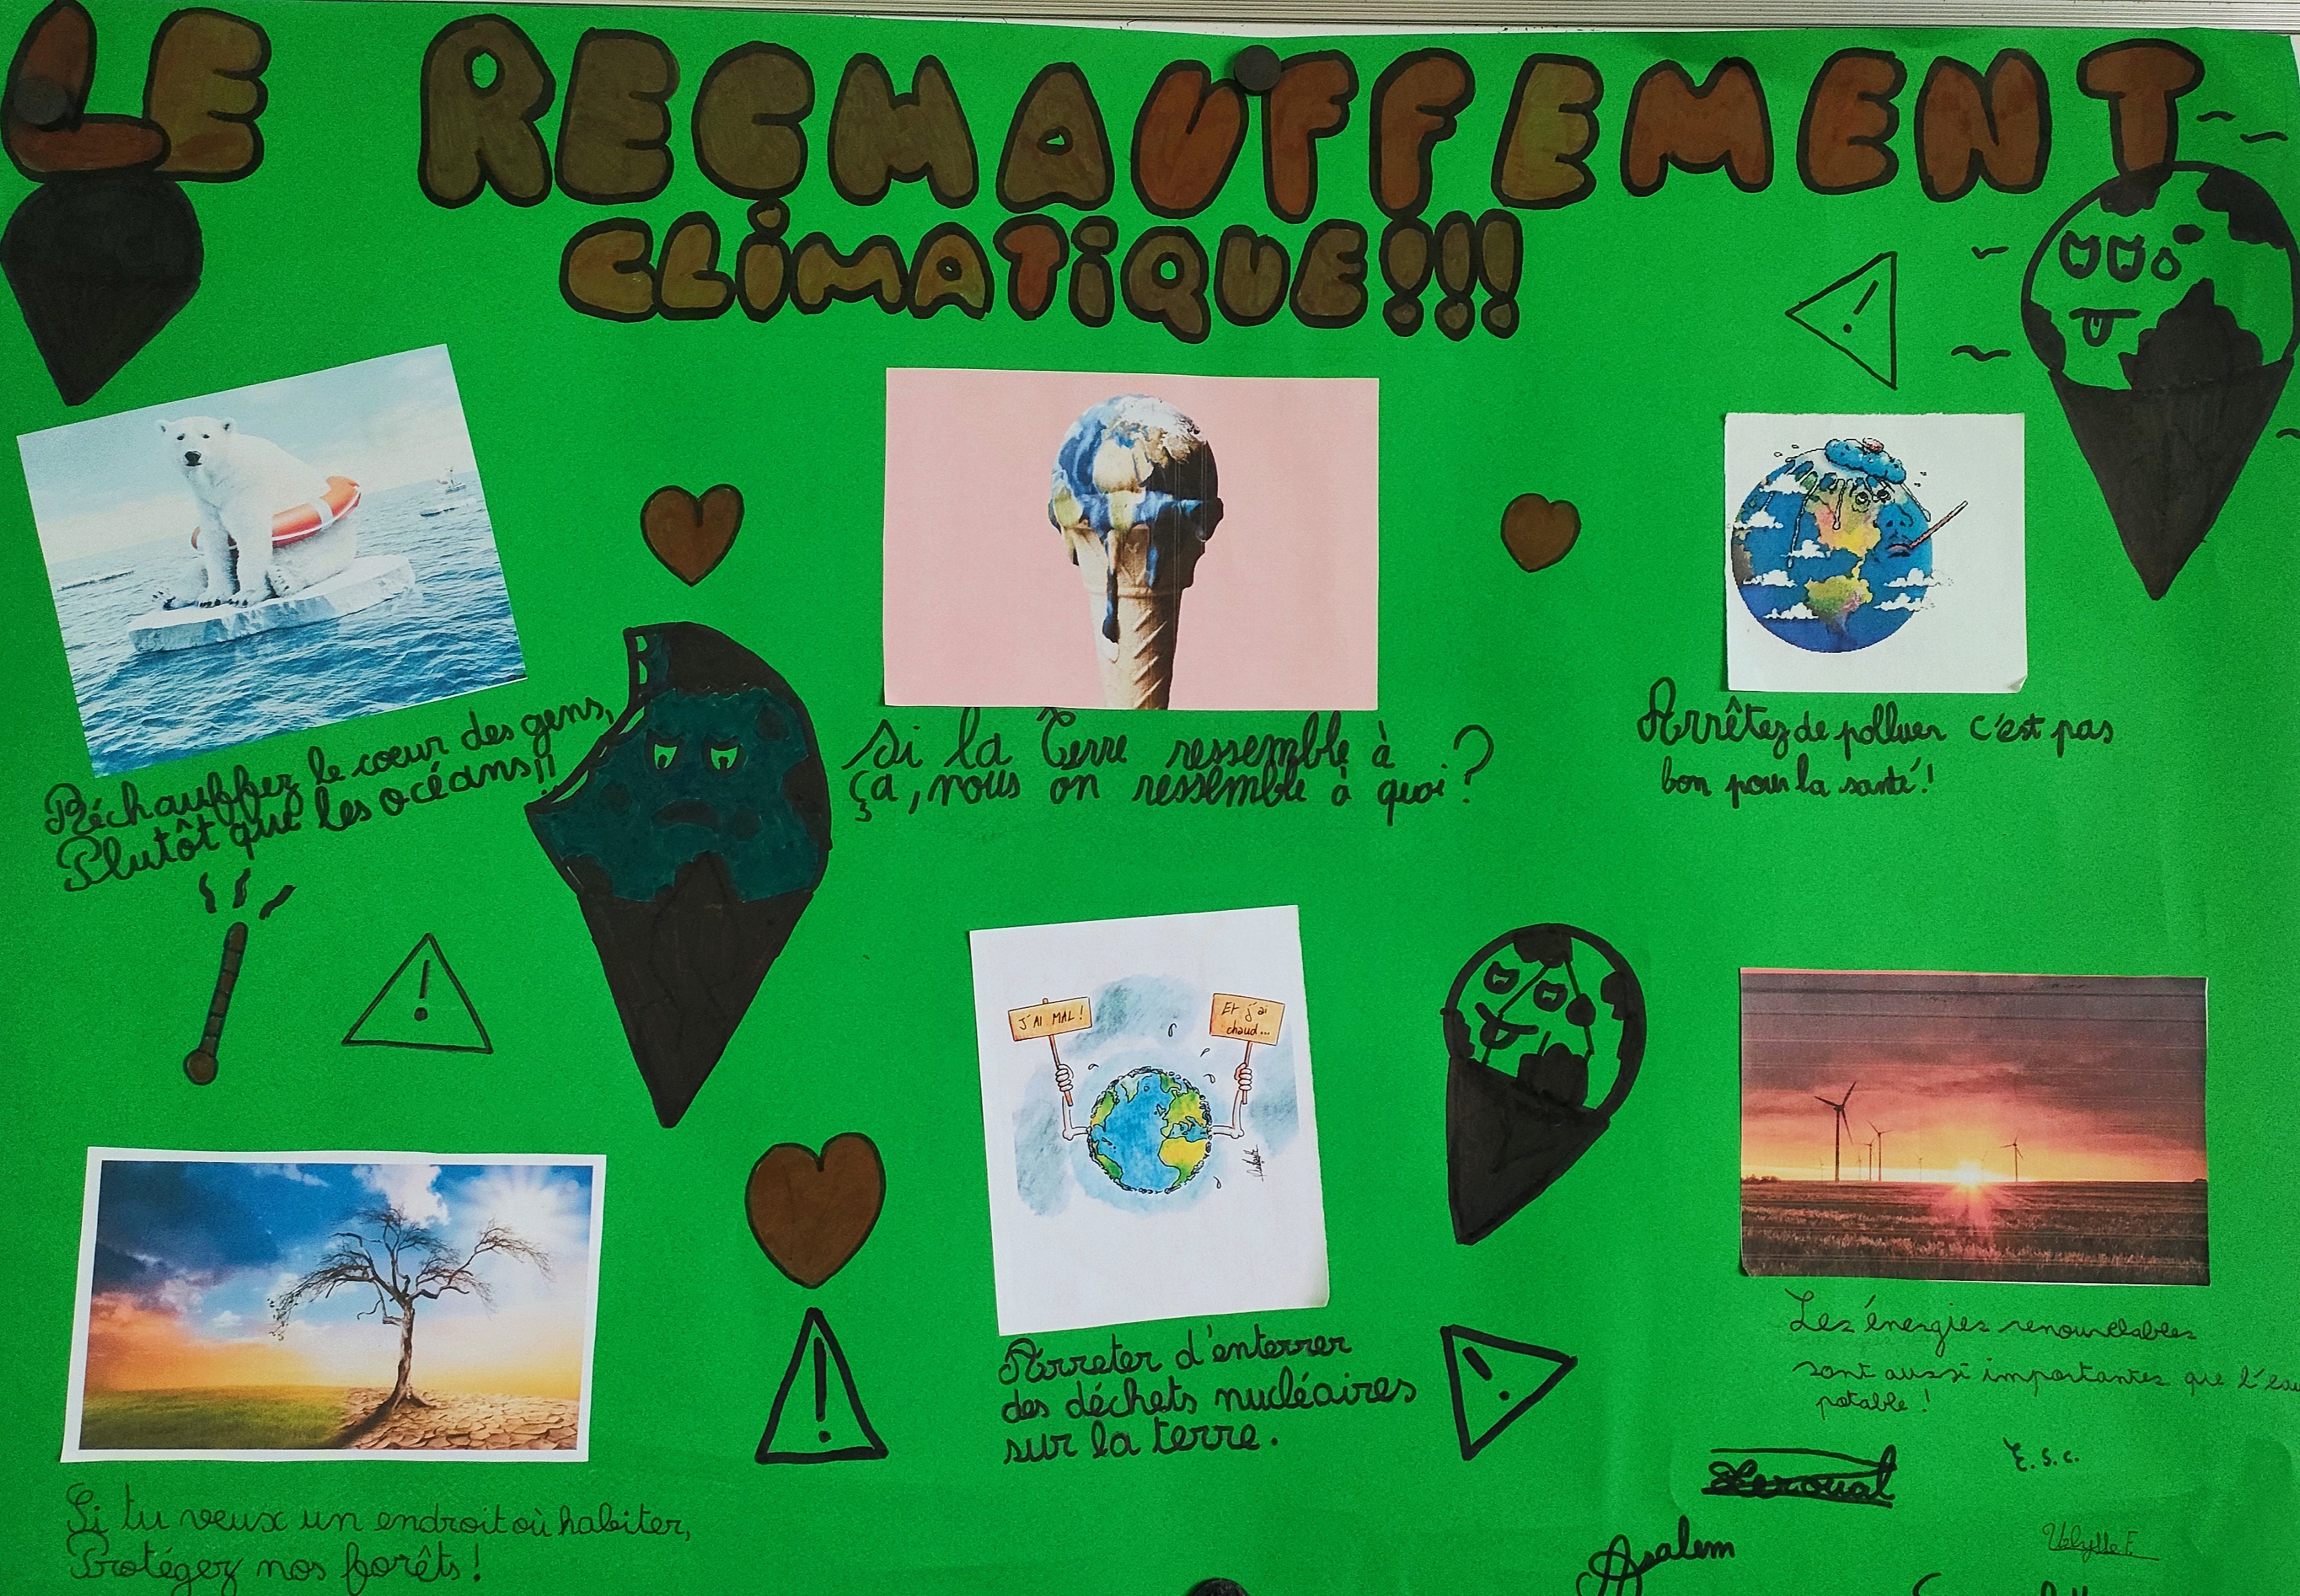 LE RECHAUFFEMENT
CLIMATIQUE!!!
Réchauffez le cœur des gens,
Plutôt que les océans!!
Si la Terre ressemble à
ça, nous on ressemble à quoi?
Arrêtez de polluer c'est pas
bon pour la santé!
J'AI MAL!
Et j'ai
chaud...
Arreter d'enterrer
des déchets nucléaires
sur la terre.
Les énergies renouvelables
sont aussi importantes que l'eau
potable!
Si tu veux un endroit où habiter,
Protégez nos forêts!
E.S.C.
Asalem